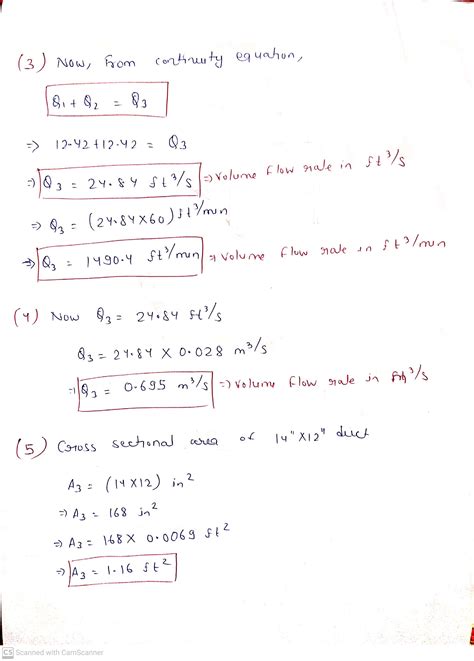 (3) Now, from continuity equation,
Q₁ + Q₂ = Q₃
=> 12.42 + 12.42 = Q₃
=> Q₃ = 24.84 ft³/s => Volume flow rate in ft³/s
=> Q₃ = (24.84 X 60) ft³/min
=> Q₃ = 1490.4 ft³/min => Volume flow rate in ft³/min
(4) Now Q₃ = 24.84 ft³/s
Q₃ = 24.84 X 0.028 m³/s
=> Q₃ = 0.695 m³/s => Volume flow rate in m³/s
(5) Cross sectional area of 14" X 12" duct
A₃ = (14 X 12) in²
=> A₃ = 168 in²
=> A₃ = 168 X 0.0069 ft²
=> A₃ = 1.16 ft²
CS Scanned with CamScanner